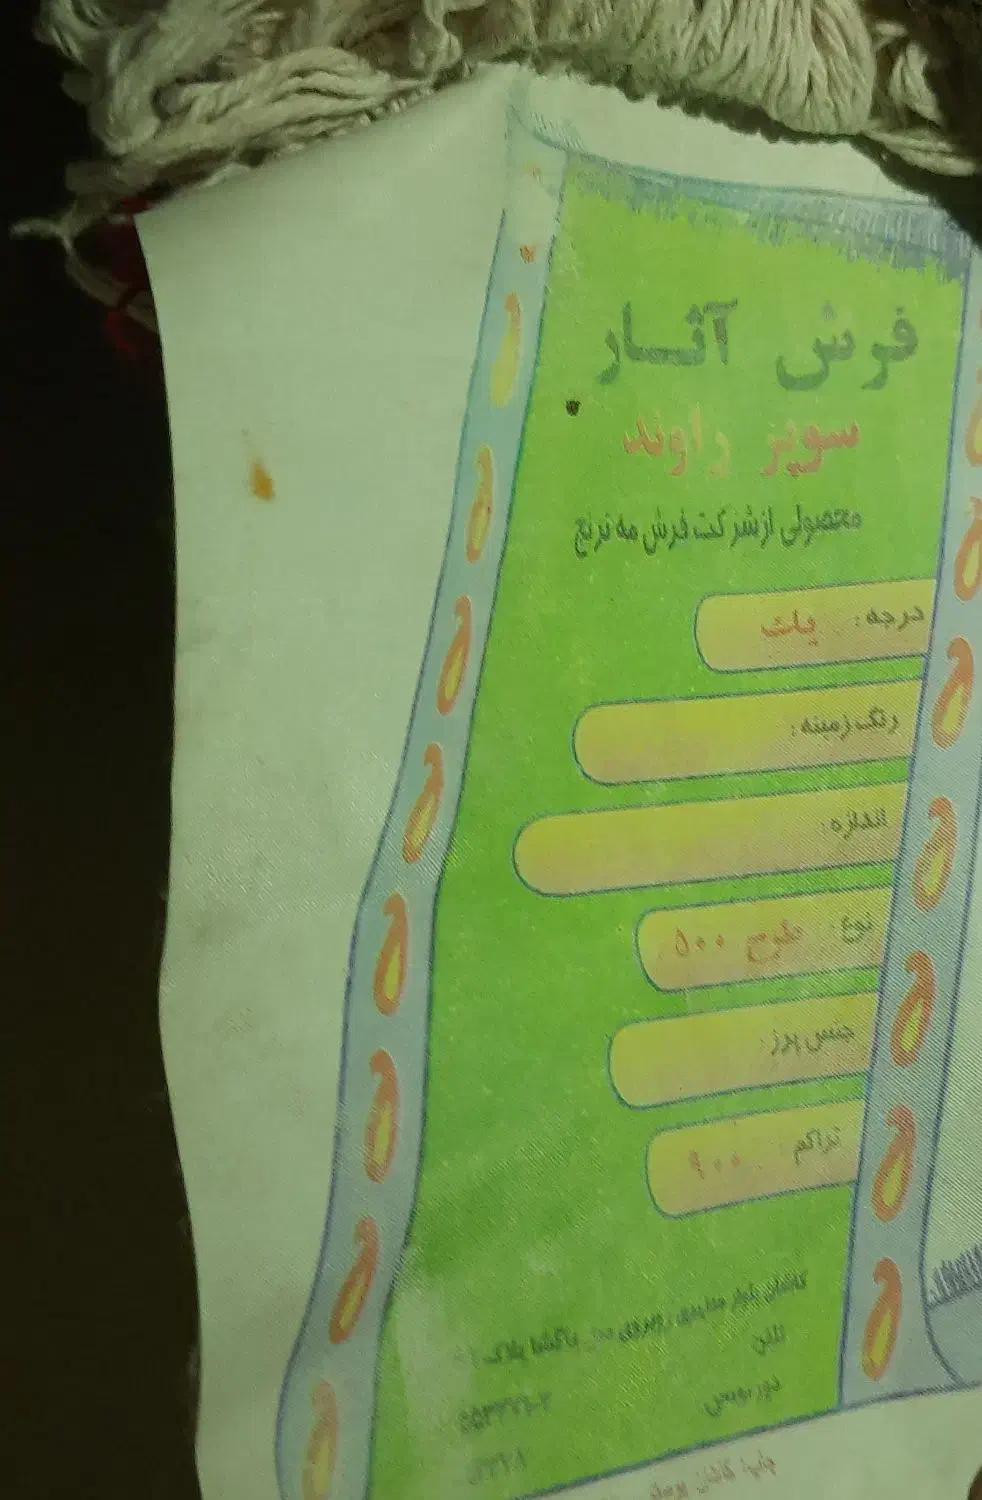 فرش آثار
سوپر راوند
محصولی از شرکت فرش مه ترنج
درجه: یک
رنگ زمینه:
اندازه:
نوع: طرح ۵۰۰
جنس پرز:
تراکم ۹۰۰
کاشان بلوار پلاک
تلفن
دورنویس
چاپ: کاشان